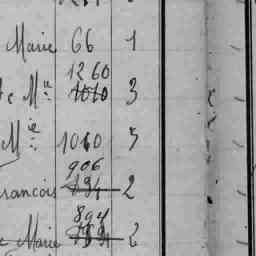 Marie 66 1
1260
e Mlle 1010 3
Mie 1060 5
906
rancois 2
894
e Marie 2